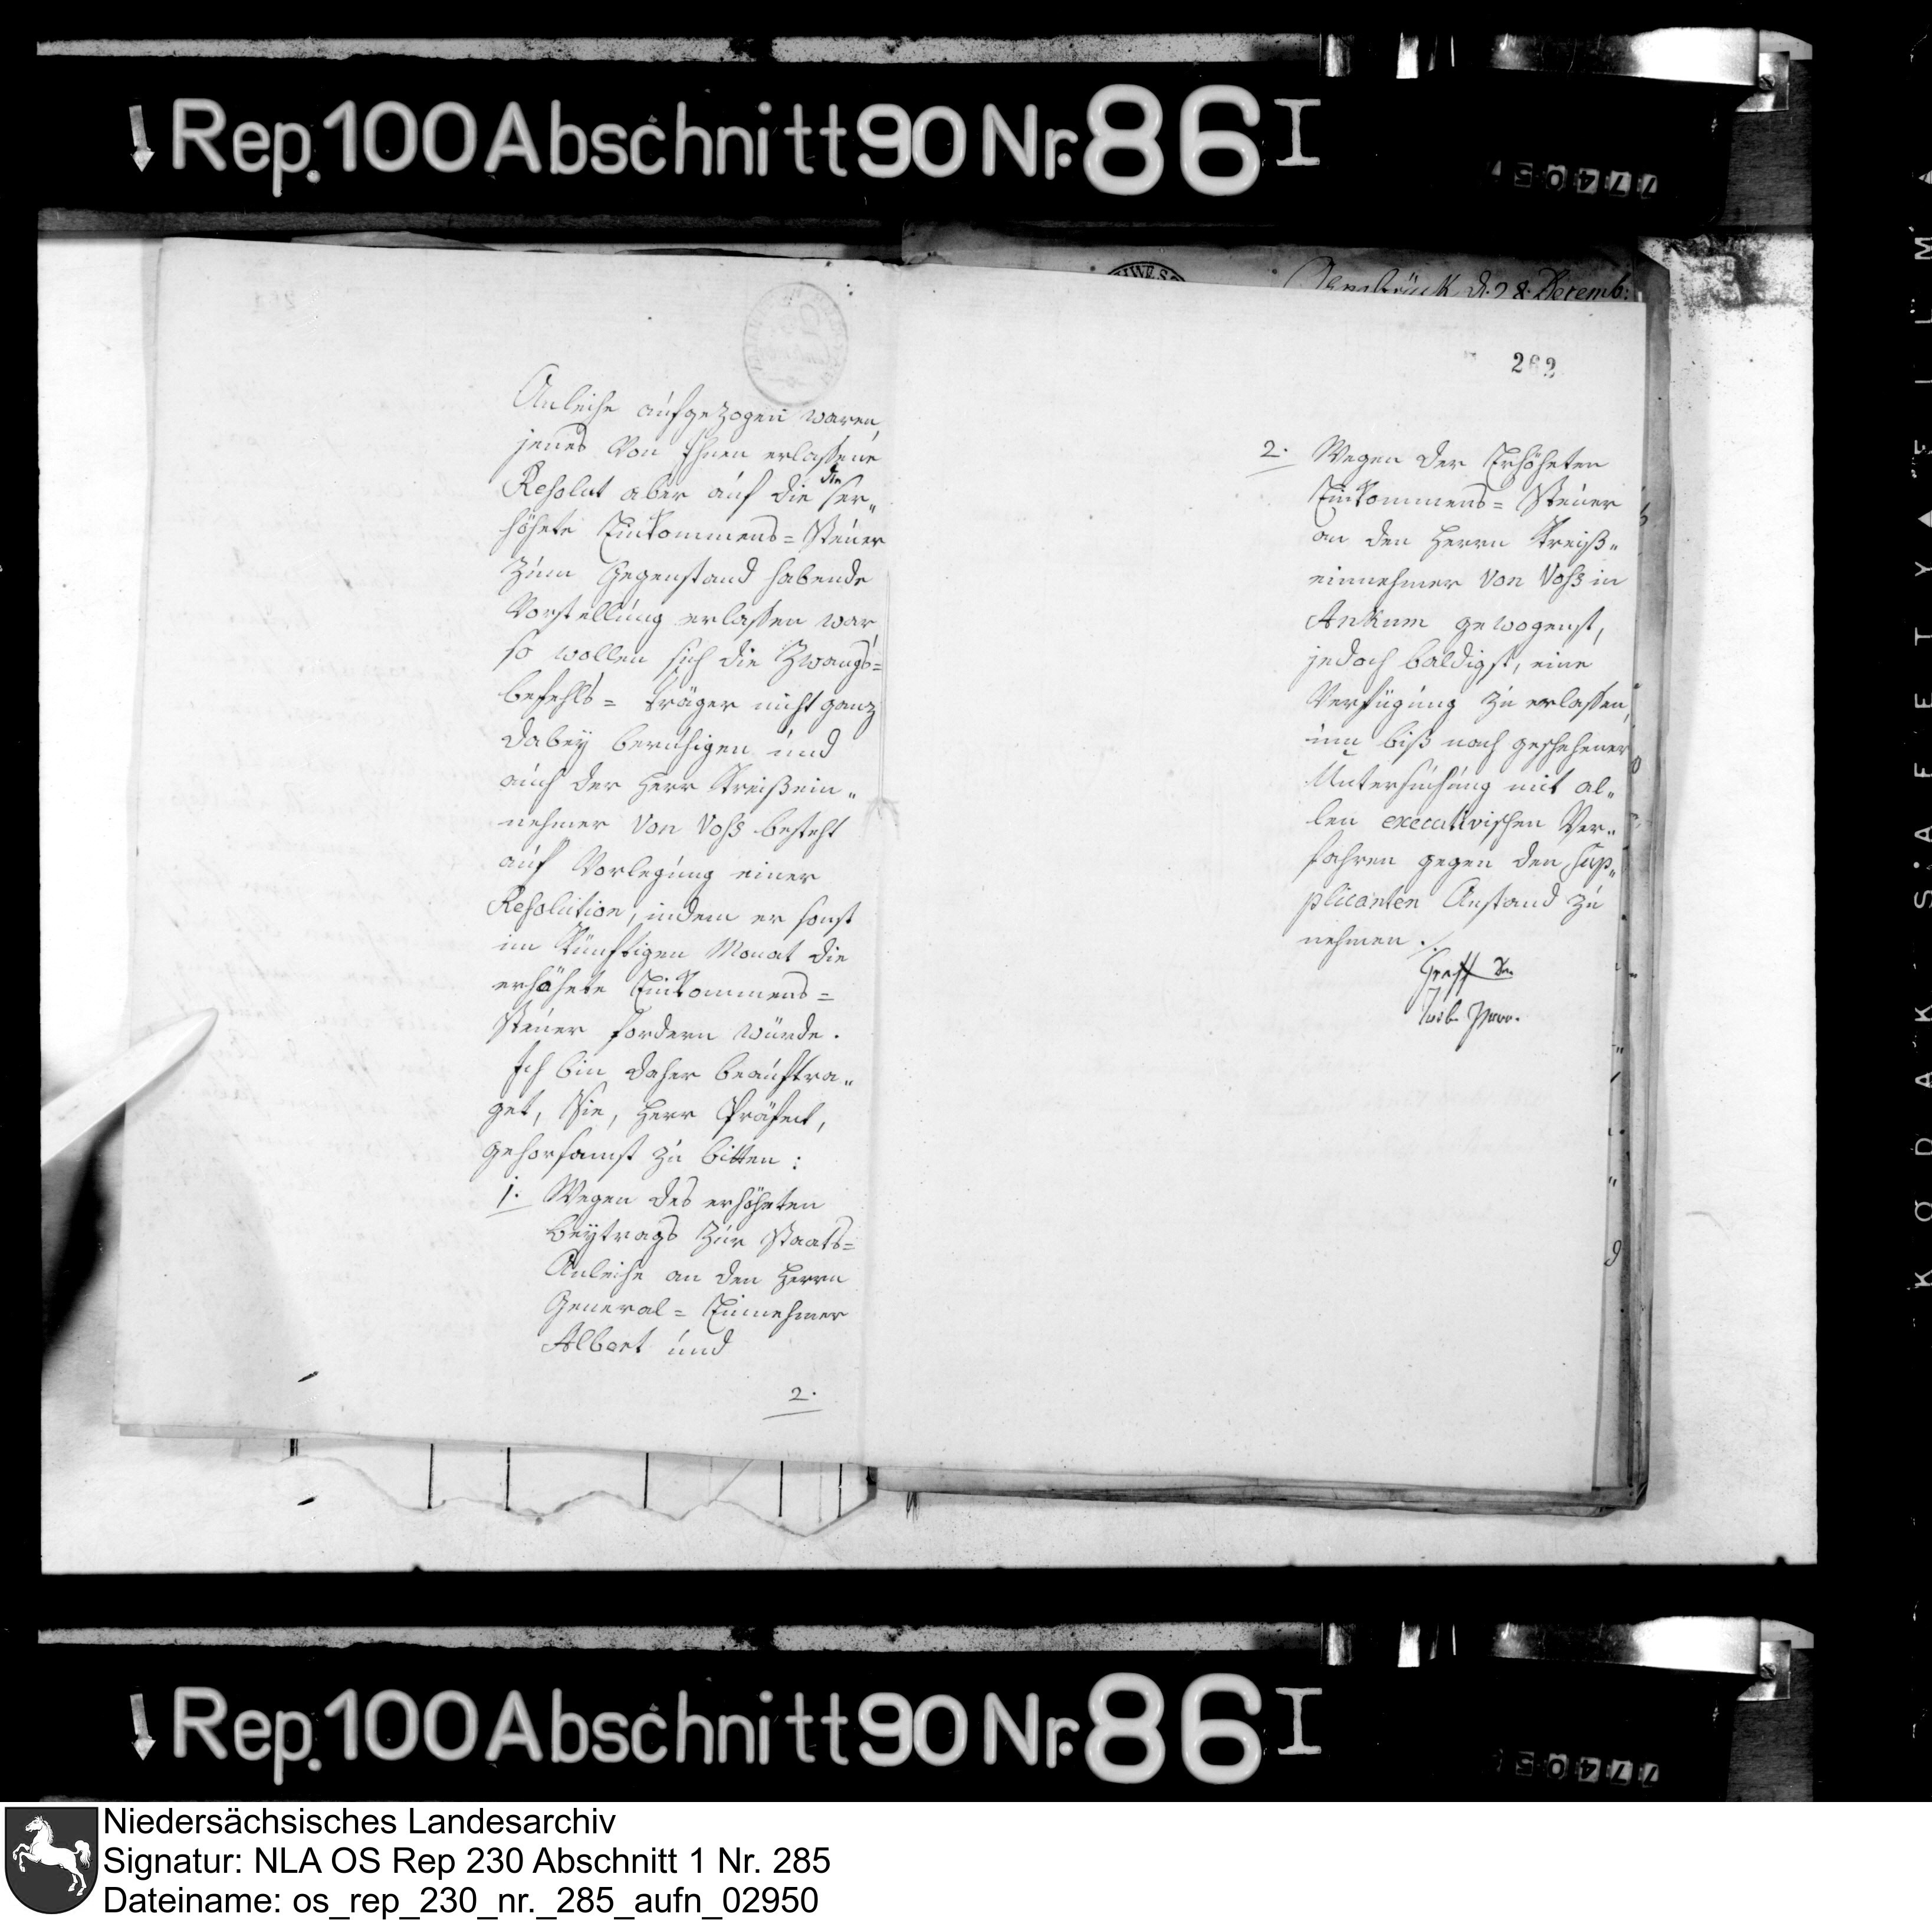 Rep. 100 Abschnitt 90 Nr. 86 I
77405
Osnabrück d. 28. Decemb:
262
Anleihe aufgezogen waren,
jenes von Ihnen erlassene
Resolut aber auf die die er„
höhete Einkommens=Steuer
zum Gegenstand habende
Vorstellung erlassen war,
so wollen sich die Zwangs=
befehls=träger nicht ganz
dabey beruhigen und
auch der Herr Kreißein„
nehmer von Voß besteht
auf Vorlegung einer
Resolution, indem er sonst
im künftigen Monat die
erhöhete Einkommens=
Steuer fordern würde.
Ich bin daher beauftra„
get, Sie, Herr Präfect,
gehorsamst zu bitten:
1. Wegen des erhöheten
Beytrags zur Staats=
Anleihe an den Herrn
General=Einnehmer
Albert und
2.
2. Wegen der Erhöheten
Einkommens=Steuer
an den Herrn Kreiß„
einnehmer von Voß in
Ankum gewogenst,
jedoch baldigst, eine
Verfügung zu erlassen,
um biß nach geschehener
Untersuchung mit al„
len executivischen Ver„
fahren gegen den Sup„
plicanten Anstand zu
nehmen ./.
KODAK SAFETY FILM
Rep. 100 Abschnitt 90 Nr. 86 I
77405
Niedersächsisches Landesarchiv
Signatur: NLA OS Rep 230 Abschnitt 1 Nr. 285
Dateiname: os_rep_230_nr._285_aufn_02950